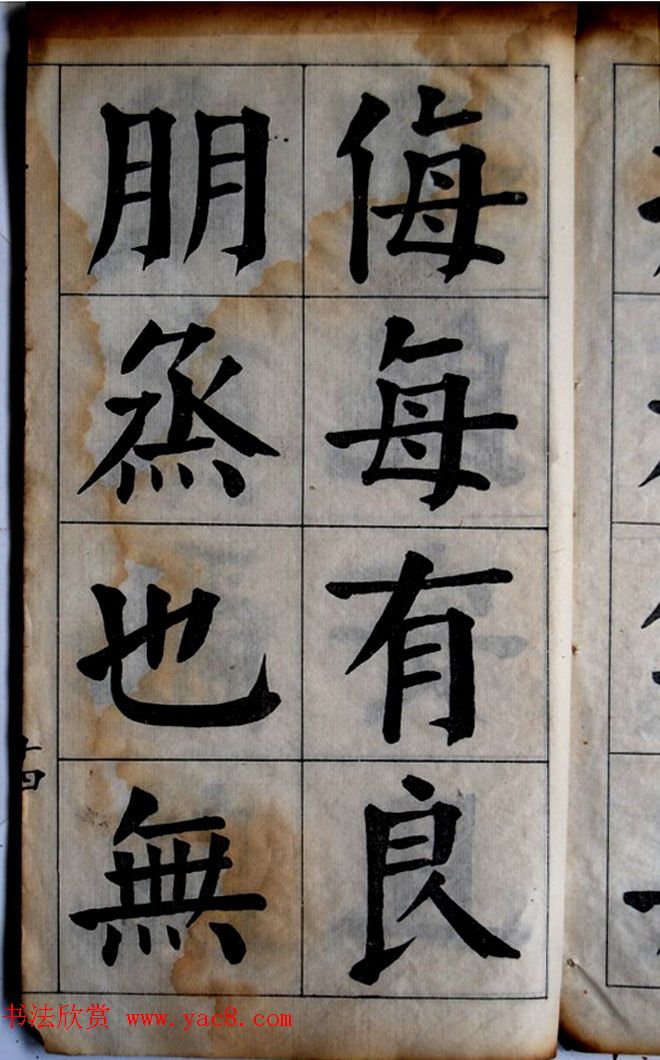 侮每有良
朋烝也無
书法欣赏 www.yac8.com